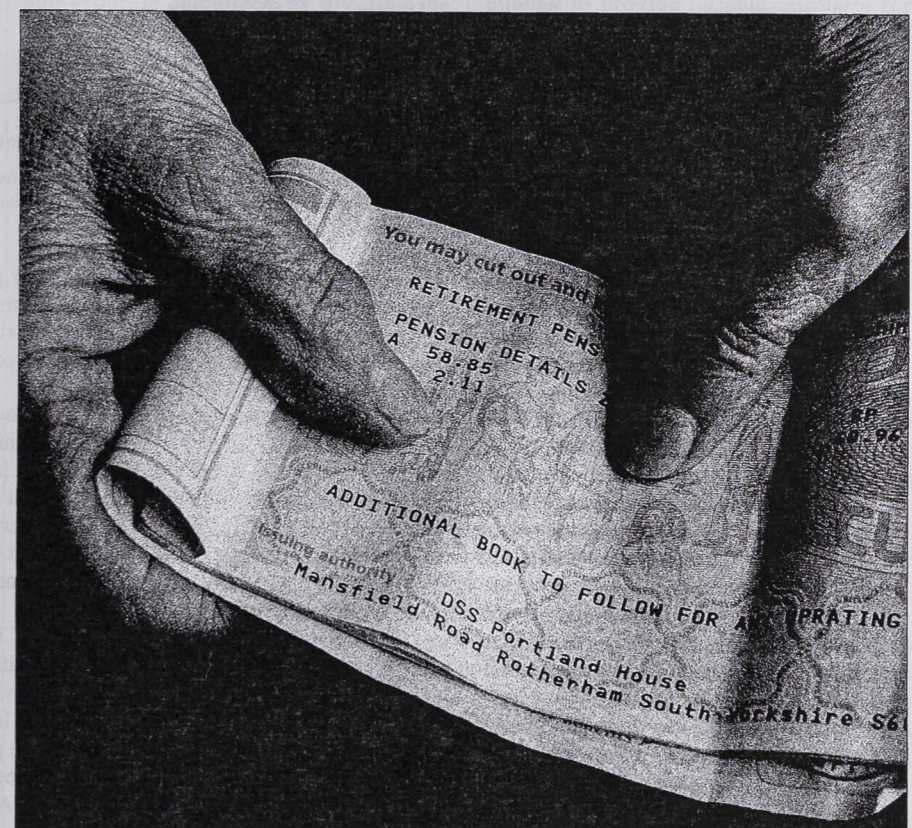 You may cut out and
RETIREMENT PENS
PENSION DETAILS
A 58.85
2.11
RP
60.96
ADDITIONAL BOOK TO FOLLOW FOR UPRATING
Issuing authority
DSS Portland House
Mansfield Road Rotherham South Yorkshire S6